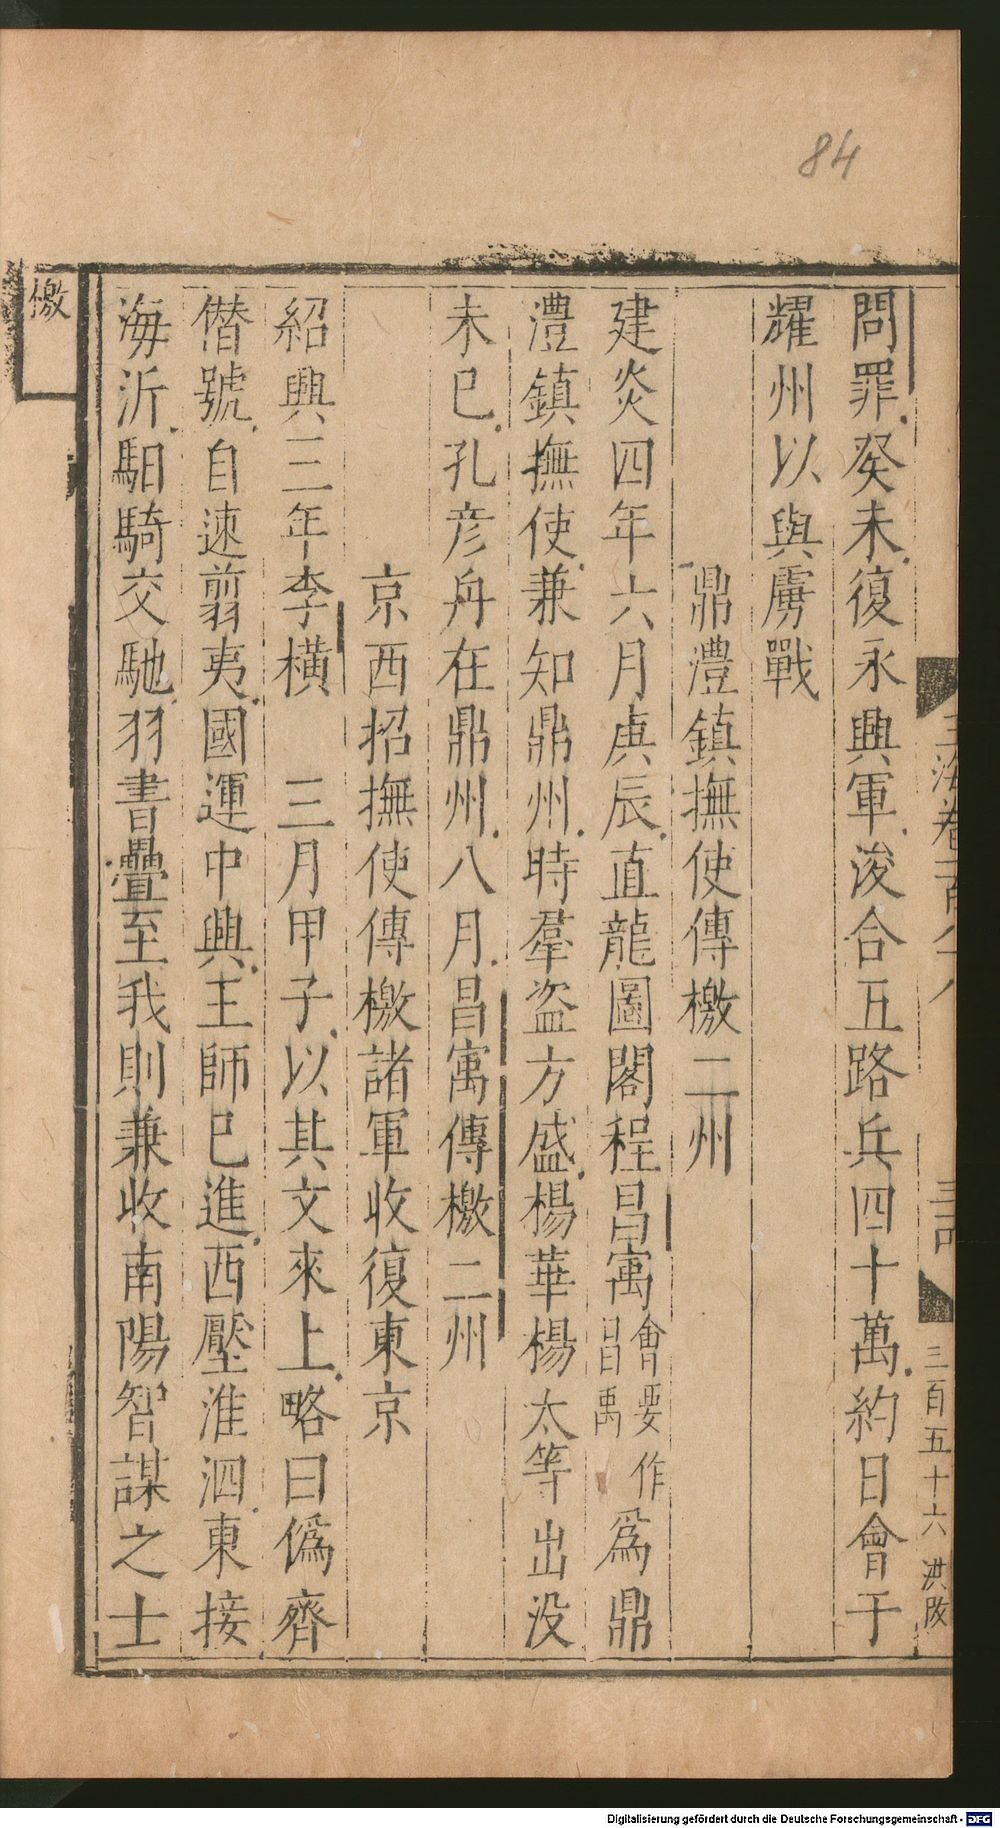 84
問罪癸未復永興軍浚合五路兵四十萬約日會于
耀州以與虜戰
鼎澧鎮撫使傳檄二州
建炎四年六月庚辰直龍圖閣程昌寓會要作昌禹為鼎
澧鎮撫使兼知鼎州時羣盜方盛楊華楊太等出没
未已孔彦舟在鼎州八月昌寓傳檄二州
京西招撫使傳檄諸軍收復東京
紹興三年李橫　三月甲子以其文來上略曰僞齊
僭號自速翦夷國運中興王師已進西壓淮泗東接
海沂馹騎交馳羽書疊至我則兼收南陽智謀之士
檄
玉海卷百八十八
三百五十六
Digitalisierung gefördert durch die Deutsche Forschungsgemeinschaft - DFG